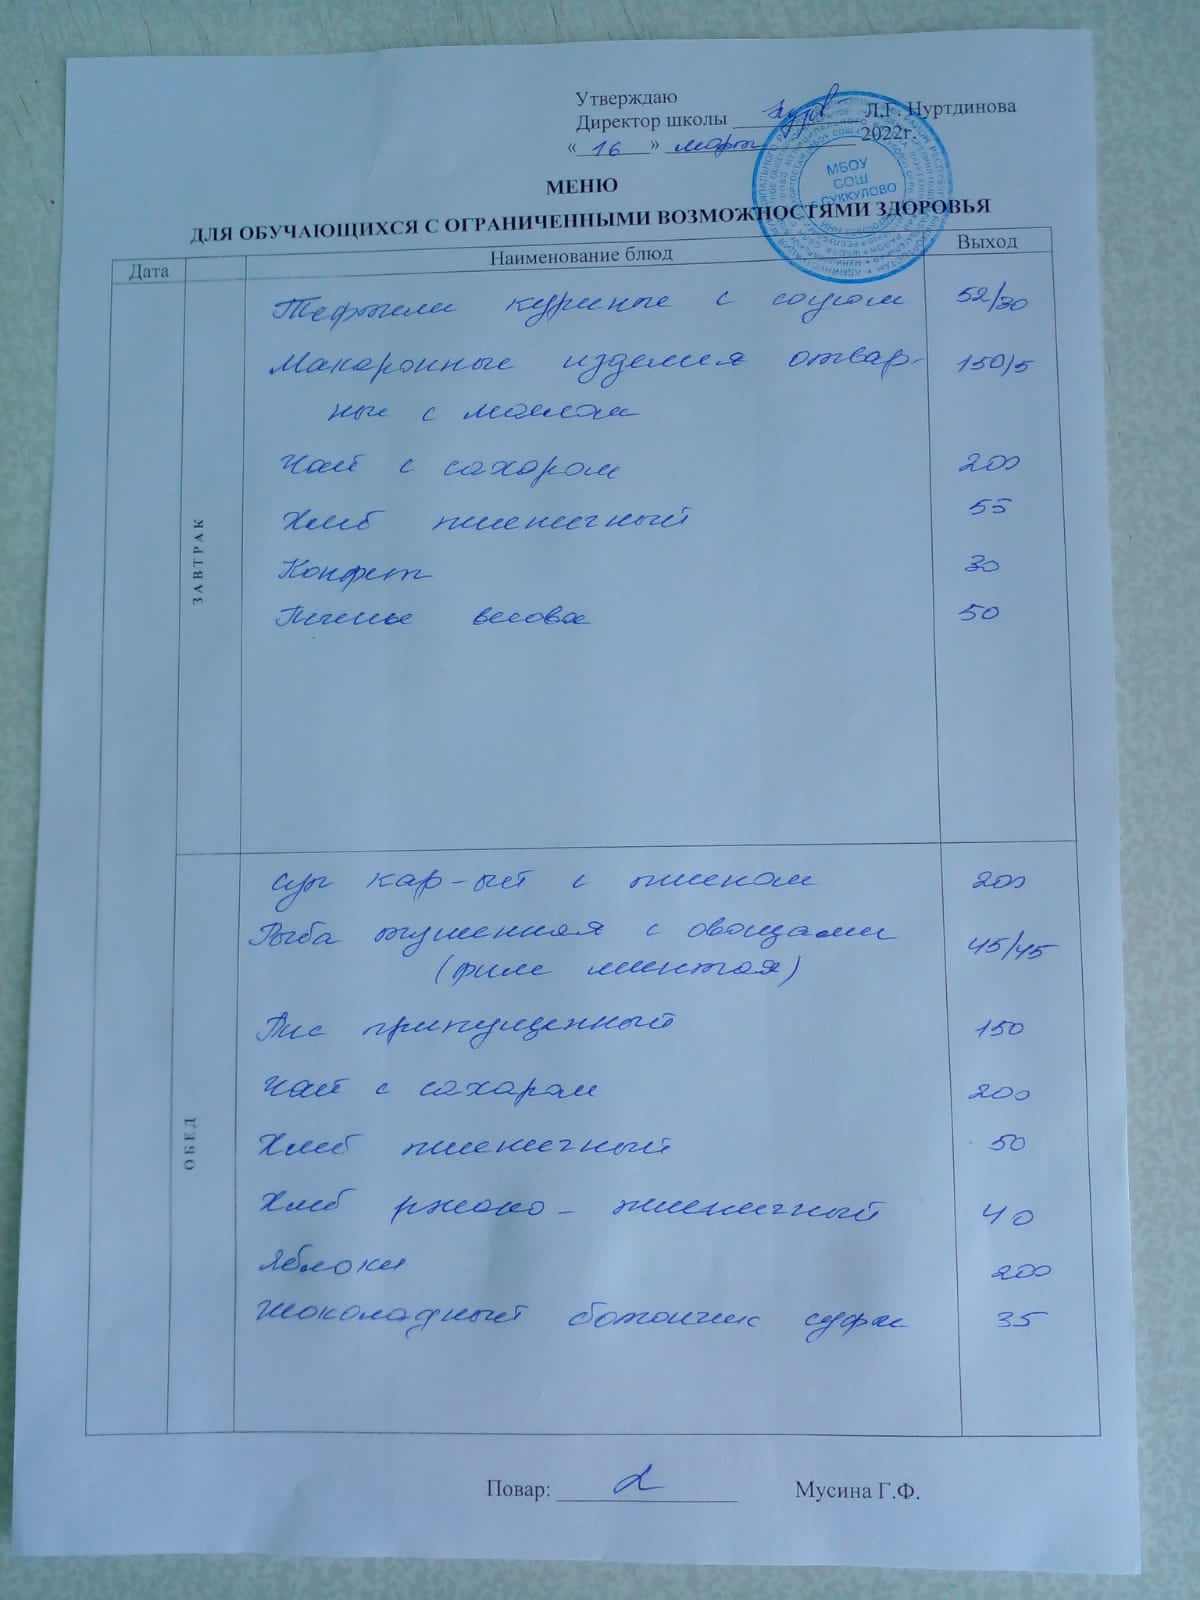 Утверждаю
Директор школы Л.Г. Нуртдинова
« 16 » март 2022г.
МБОУ
СОШ
с.СУККУЛОВО
МЕНЮ
ДЛЯ ОБУЧАЮЩИХСЯ С ОГРАНИЧЕННЫМИ ВОЗМОЖНОСТЯМИ ЗДОРОВЬЯ
Дата Наименование блюд Выход
ЗАВТРАК
Тефтели куриные с соусом 52/30
Макаронные изделия отвар- 150/5
ные с маслом
Чай с сахаром 200
Хлеб пшеничный 55
Конфет 30
Печенье весовое 50
ОБЕД
Суп кар-ый с пшеном 200
Рыба тушенная с овощами 45/45
(филе минтая)
Рис припущенный 150
Чай с сахаром 200
Хлеб пшеничный 50
Хлеб ржано - пшеничный 40
Яблоки 200
Шоколадный батончик суфле 35
Повар: Мусина Г.Ф.